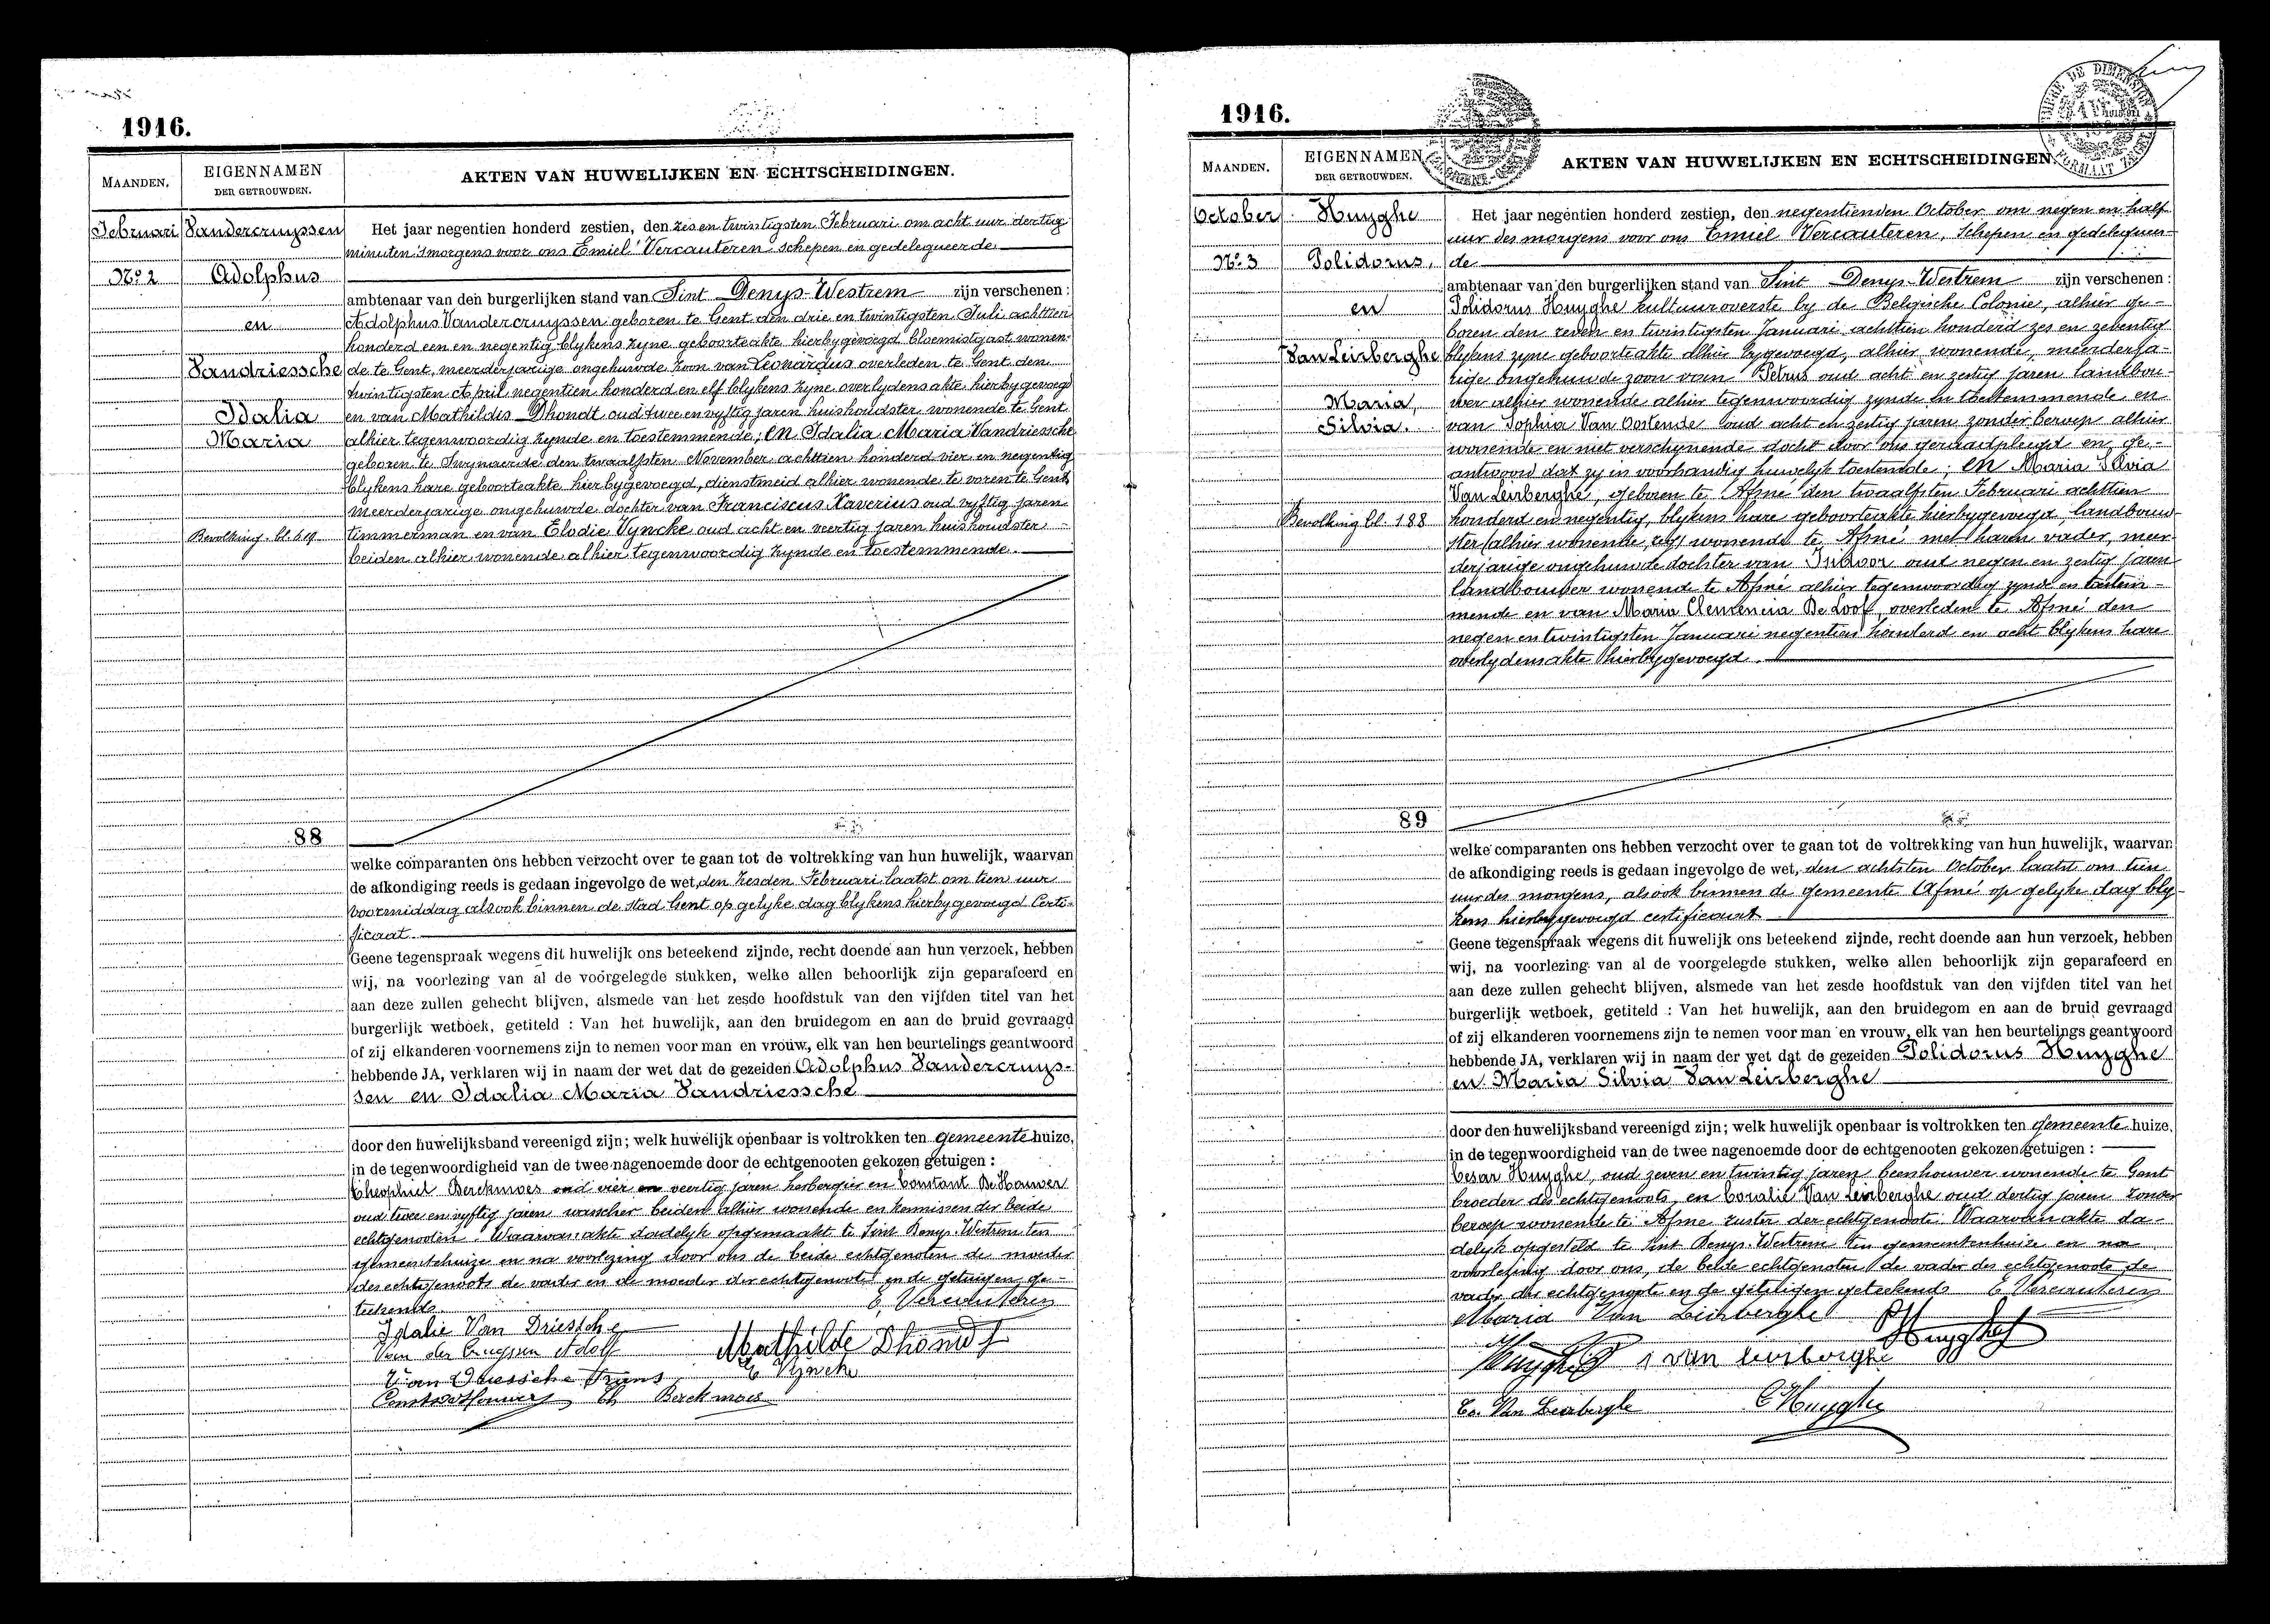 1916.
MAANDEN.
EIGENNAMEN
DER GETROUWDEN.
AKTEN VAN HUWELIJKEN EN ECHTSCHEIDINGEN.
Februari
Vandercruyssen
No. 2
Adolphus
en
Vandriessche
Idalia
Maria
Bevolking. bl.
88
Het jaar negentien honderd zestien, den zes en twintigsten Februari om acht uur dertig
minuten 's morgens voor ons Emiel Vercauteren schepen en gedelegueerde
ambtenaar van den burgerlijken stand van Sint Denys-Westrem zijn verschenen :
Adolphus Vandercruyssen geboren te Gent den drie en twintigsten Juli achttien
honderd een en negentig blykens zyne geboorteakte hierbygevoegd bloemistgast wonen-
de te Gent, meerderjarige ongehuwde zoon van Leonardus overleden te Gent den
twintigsten April negentien honderd en elf blykens zyne overlydensakte hierbygevoegd
en van Mathildis Dhondt oud twee en vyftig jaren huishoudster wonende te Gent
alhier tegenwoordig zynde en toestemmende; en Idalia Maria Vandriessche
geboren te Swynaerde den twaalfsten November achttien honderd vier en negentig
blykens hare geboorteakte hierbygevoegd, dienstmeid alhier wonende te voren te Gent,
meerderjarige ongehuwde dochter van Franciscus Xaverius oud vyftig jaren
timmerman en van Elodie Vyncke oud acht en veertig jaren huishoudster
beiden alhier wonende alhier tegenwoordig zynde en toestemmende.
welke comparanten ons hebben verzocht over te gaan tot de voltrekking van hun huwelijk, waarvan
de afkondiging reeds is gedaan ingevolge de wet, den zesden Februari laatst om tien uur
voormiddag alsook binnen de stad Gent op gelyke dag blykens hierbygevoegd Certi-
ficaat.
Geene tegenspraak wegens dit huwelijk ons beteekend zijnde, recht doende aan hun verzoek, hebben
wij, na voorlezing van al de voorgelegde stukken, welke allen behoorlijk zijn geparafeerd en
aan deze zullen gehecht blijven, alsmede van het zesde hoofdstuk van den vijfden titel van het
burgerlijk wetboek, getiteld : Van het huwelijk, aan den bruidegom en aan de bruid gevraagd
of zij elkanderen voornemens zijn te nemen voor man en vrouw, elk van hen beurtelings geantwoord
hebbende JA, verklaren wij in naam der wet dat de gezeiden Adolphus Vandercruys-
sen en Idalia Maria Vandriessche
door den huwelijksband vereenigd zijn; welk huwelijk openbaar is voltrokken ten gemeente huize,
in de tegenwoordigheid van de twee nagenoemde door de echtgenooten gekozen getuigen :
Theophiel Berckmoes oud vier en veertig jaren herbergier en Constant De Houwer
oud twee en vyftig jaren wasscher beiden alhier wonende en kennissen der beide
echtgenooten. Waarvan akte dadelyk opgemaakt te Sint Denys-Westrem ten
gemeentehuize en na voorlezing door ons de beide echtgenoten de moeder
des echtgenoots de vader en de moeder der echtgenoote en de getuigen ge-
teekend. E. Vercauteren
Idalie Van Driessche
Van der Cruyssen Adolf Mathilde Dhondt
Van Driessche Frans E Vyncke
Th Berckmoes
1916.
MAANDEN.
EIGENNAMEN
DER GETROUWDEN.
AKTEN VAN HUWELIJKEN EN ECHTSCHEIDINGEN.
October
Huyghe
No. 3
Polidorus,
en
Van Leirberghe
Maria,
Silvia.
Bevolking bl. 188
89
Het jaar negentien honderd zestien, den negentienden October om negen en half
uur des morgens voor ons Emiel Vercauteren, Schepen en gedelegueer-
de
ambtenaar van den burgerlijken stand van Sint Denys-Westrem zijn verschenen :
Polidorus Huyghe kultuuroverste by de Belgische Colonie, alhier ge-
boren den zeven en twintigsten Januari achttien honderd zes en zeventig
blykens zyne geboorteakte alhier bygevoegd, alhier wonende, meerderja-
rige ongehuwde zoon van Petrus oud acht en zestig jaren landbou-
wer alhier wonende alhier tegenwoordig zynde en toestemmende en
van Sophia Van Oostende oud acht en zestig jaren zonder beroep alhier
wonende en niet verschynende docht door ons geraadpleegd en ge-
antwoord dat zy in voorhandig huwelyk toestemde; en Maria Silvia
Van Leirberghe, geboren te Afsné den twaalfsten Februari achttien
honderd en negentig, blykens hare geboorteakte hierbygevoegd, landbouw-
ster alhier wonende, wonende te Afsné met haren vader, meer-
derjarige ongehuwde dochter van Isidoor oud negen en zestig jaren
landbouwer wonende te Afsné alhier tegenwoordig zynde en toestem-
mende en van Maria Clemencia De Loof, overleden te Afsné den
negen en twintigsten Januari negentien honderd en acht blykens hare
overlydensakte hierbygevoegd.
welke comparanten ons hebben verzocht over te gaan tot de voltrekking van hun huwelijk, waarvan
de afkondiging reeds is gedaan ingevolge de wet, den achtsten October laatst om tien
uur des morgens, alsook binnen de gemeente Afsné op gelyke dag bly-
kens hierbygevoegd certificaat
Geene tegenspraak wegens dit huwelijk ons beteekend zijnde, recht doende aan hun verzoek, hebben
wij, na voorlezing van al de voorgelegde stukken, welke allen behoorlijk zijn geparafeerd en
aan deze zullen gehecht blijven, alsmede van het zesde hoofdstuk van den vijfden titel van het
burgerlijk wetboek, getiteld : Van het huwelijk, aan den bruidegom en aan de bruid gevraagd
of zij elkanderen voornemens zijn te nemen voor man en vrouw, elk van hen beurtelings geantwoord
hebbende JA, verklaren wij in naam der wet dat de gezeiden Polidorus Huyghe
en Maria Silvia Van Leirberghe
door den huwelijksband vereenigd zijn; welk huwelijk openbaar is voltrokken ten gemeente huize,
in de tegenwoordigheid van de twee nagenoemde door de echtgenooten gekozen getuigen :
Cesar Huyghe, oud zeven en twintig jaren beenhouwer wonende te Gent
broeder des echtgenoots, en Coralie Van Leirberghe oud dertig jaren zonder
beroep wonende te Afsne zuster der echtgenoote. Waarvan akte da-
delyk opgesteld te Sint Denys-Westrem ten gemeentenhuize en na
voorlezing door ons, de beide echtgenoten de vader des echtgenoots, de
vader der echtgenoote en de getuigen geteekend E Vercauteren
Maria Van Leirberghe P Huyghe
Huyghe P i van leirberghe
Co. Van Leirberghe C Huyghe